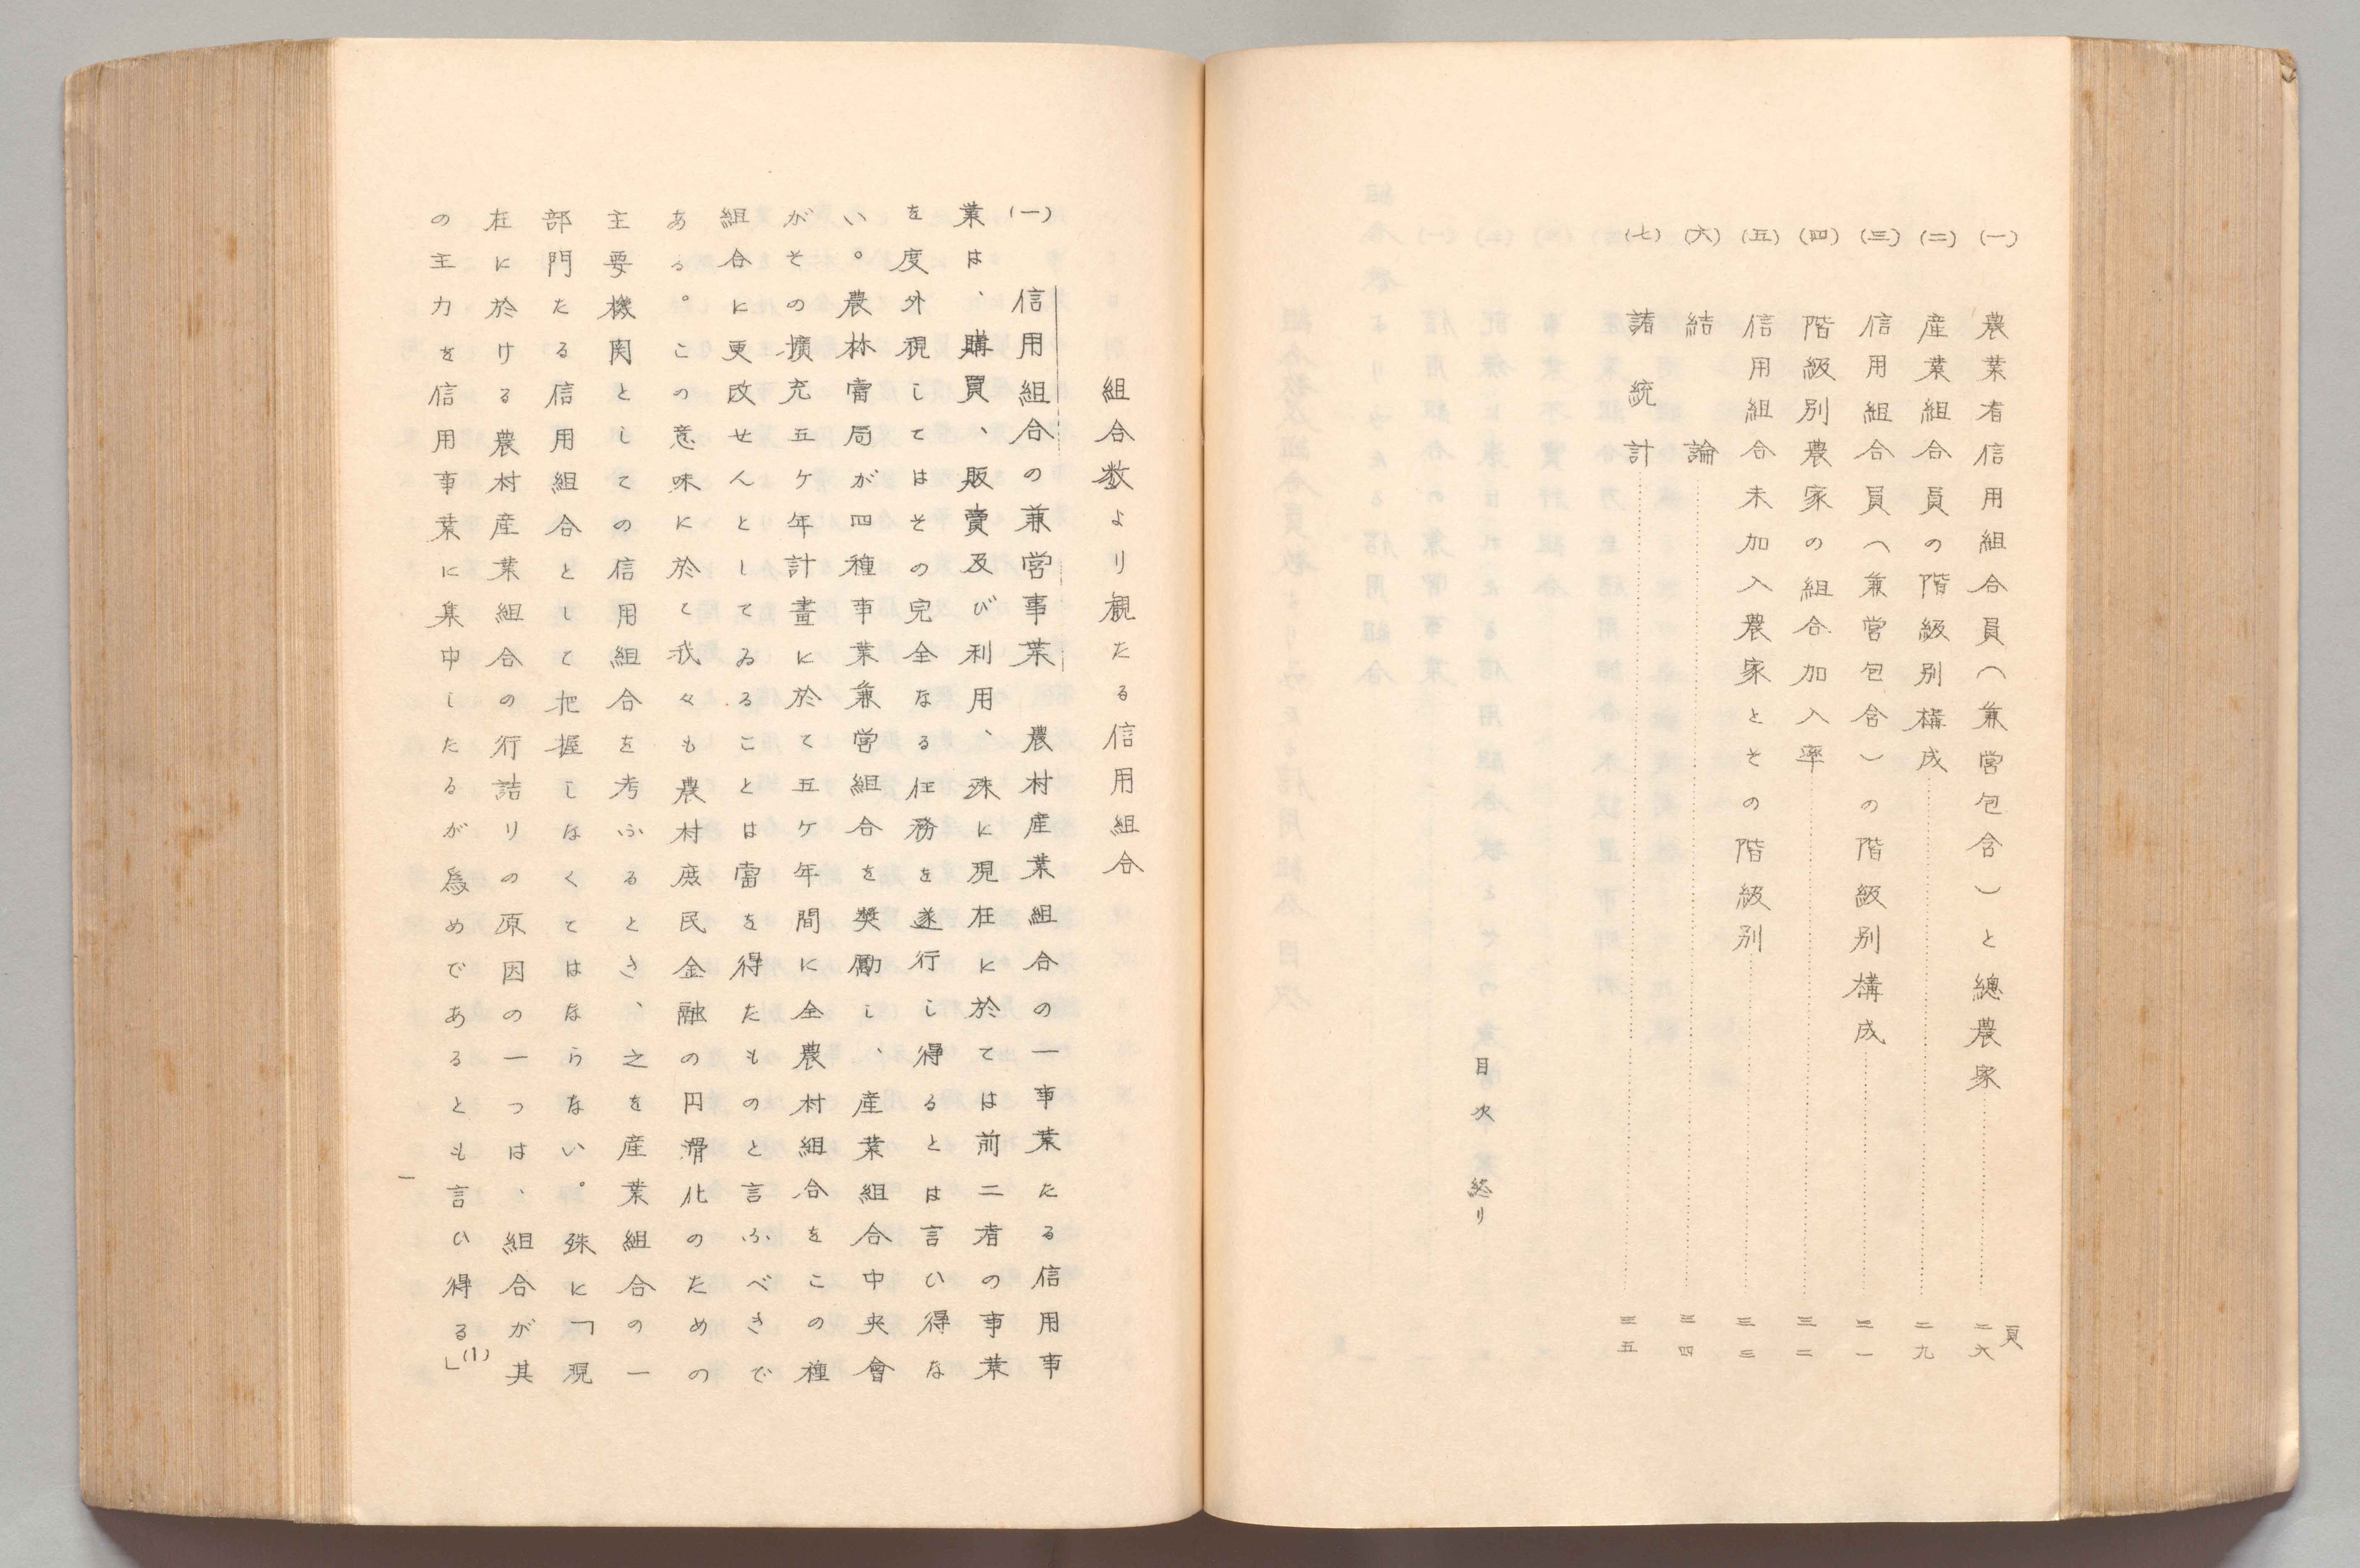 頁
(一) 農業者信用組合員(兼営包含)と總農家……二六
(二) 産業組合員の階級別構成……二九
(三) 信用組合員(兼営包含)の階級別構成……三一
(四) 階級別農家の組合加入率……三二
(五) 信用組合未加入農家とその階級別……三三
(六) 結論……三四
(七) 諸統計……三五
目次終り
組合数より観たる信用組合
(一) 信用組合の兼営事業 農村産業組合の一事業たる信用事
業は、購買、販賣及び利用、殊に現在に於ては前二者の事業
を度外視してはその完全なる任務を遂行し得るとは言ひ得な
い。農林當局が四種事業兼営組合を奬勵し、産業組合中央會
がその擴充五ケ年計畫に於て五ケ年間に全農村組合をこの種
組合に更改せんとしてゐることは當を得たものと言ふべきで
ある。この意味に於て我々も農村庶民金融の円滑化のための
主要機関としての信用組合を考ふるとき、之を産業組合の一
部門たる信用組合として把握しなくてはならない。殊に「現
在に於ける農村産業組合の行詰りの原因の一つは、組合が其
の主力を信用事業に集中したるが為めであるとも言ひ得る」(1)
一